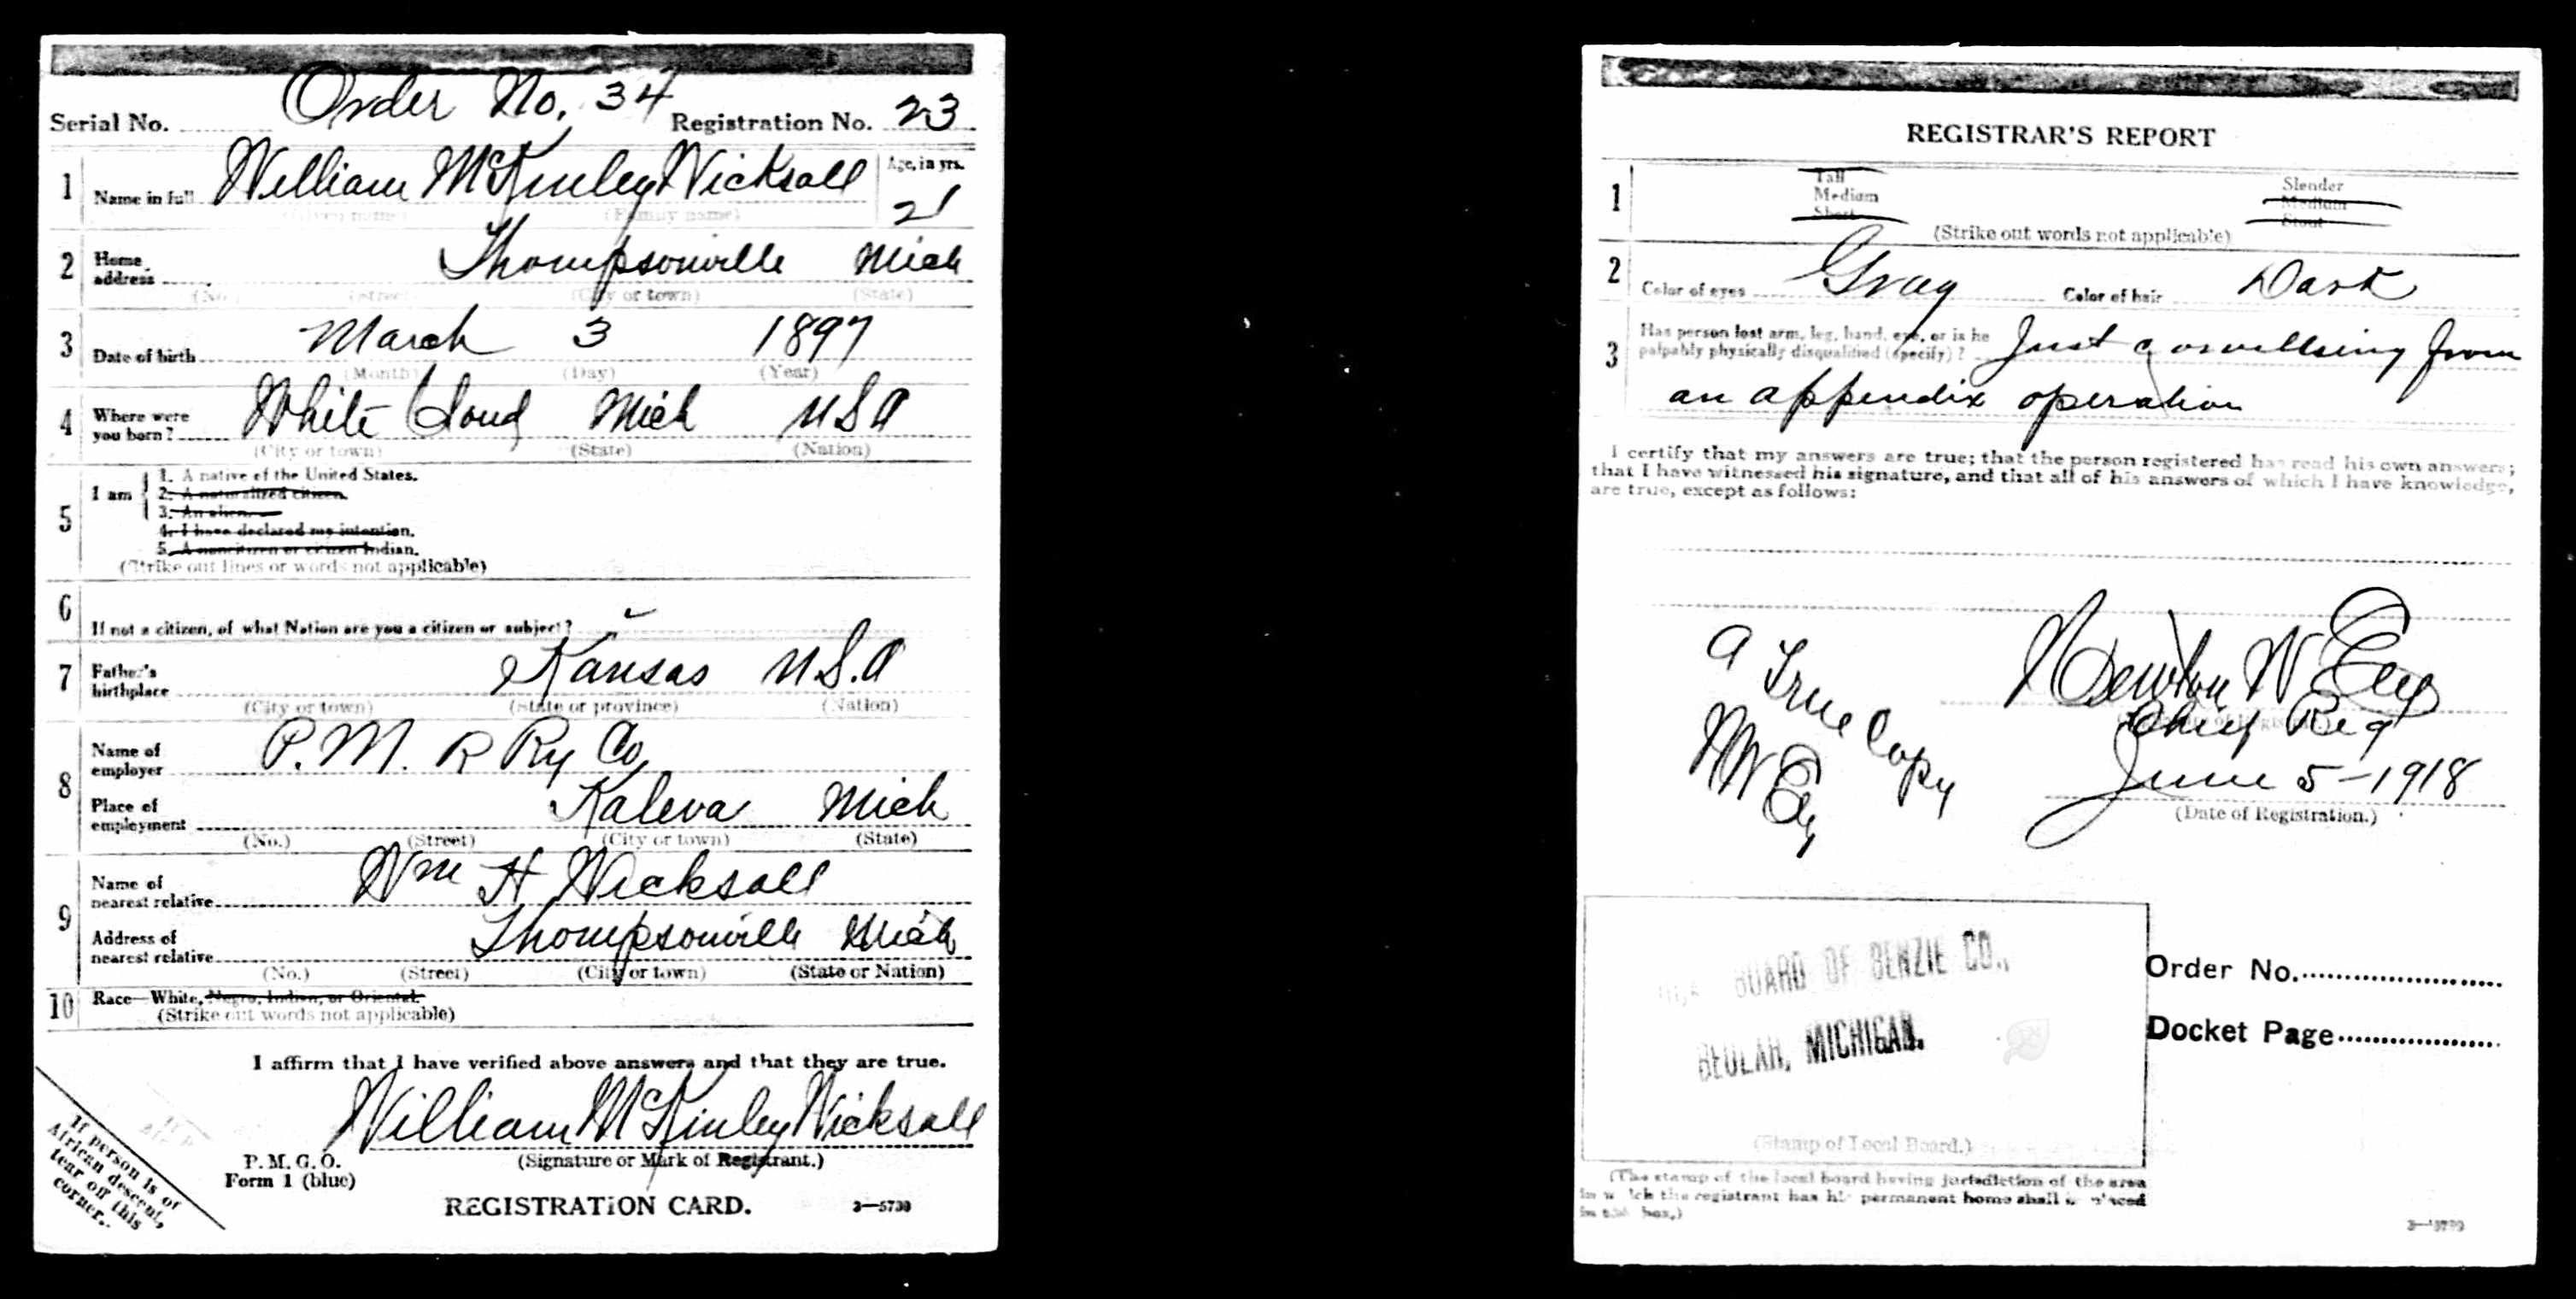 Order No. 34
Serial No. Registration No. 23
1 Name in full William McKinley Nicksall Age, in yrs. 21
(Given name) (Family name)
2 Home address Thompsonville Mich
(No.) (Street) (City or town) (State)
3 Date of birth March 3 1897
(Month) (Day) (Year)
4 Where were you born? White Cloud Mich USA
(City or town) (State) (Nation)
5 I am
1. A native of the United States.
2. A naturalized citizen.
3. An alien.
4. I have declared my intention.
5. A noncitizen or citizen Indian.
(Strike out lines or words not applicable)
6 If not a citizen, of what Nation are you a citizen or subject?
7 Father's birthplace Kansas U.S.A
(City or town) (State or province) (Nation)
8 Name of employer P.M. R Ry Co,
Place of employment Kaleva Mich
(No.) (Street) (City or town) (State)
9 Name of nearest relative Wm H Nicksall
Address of nearest relative Thompsonville Mich
(No.) (Street) (City or town) (State or Nation)
10 Race—White, Negro, Indian, or Oriental.
(Strike out words not applicable)
I affirm that I have verified above answers and that they are true.
William McKinley Nicksall
(Signature or Mark of Registrant.)
P. M. G. O.
Form 1 (blue)
REGISTRATION CARD.
3—5730
If person is of
African descent,
tear off this
corner.
REGISTRAR'S REPORT
1 Tall Slender
Medium Medium
Short Stout
(Strike out words not applicable)
2 Color of eyes Gray Color of hair Dark
3 Has person lost arm, leg, hand, eye, or is he
palpably physically disqualified (specify)? Just convillsing from
an appendix operation
I certify that my answers are true; that the person registered has read his own answers;
that I have witnessed his signature, and that all of his answers of which I have knowledge,
are true, except as follows:
A True Copy
NW Ely
Newton W Ely
Chief Reg
June 5-1918
(Date of Registration.)
BOARD OF BENZIE CO.,
BEULAH, MICHIGAN.
(Stamp of Local Board.)
Order No.
Docket Page
(The stamp of the local board having jurisdiction of the area
in which the registrant has his permanent home shall be placed
in this box.)